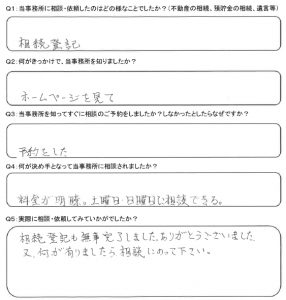 Q1:当事務所に相談・依頼したのはどの様なことでしたか?(不動産の相続、預貯金の相続、遺言等)
相続登記
Q2:何がきっかけで、当事務所を知りましたか?
ホームページを見て
Q3:当事務所を知ってすぐに相談のご予約をしましたか?しなかったとしたらなぜですか?
予約をした
Q4:何が決め手となって当事務所に相談されましたか?
料金が明瞭。土曜日・日曜日に相談できる。
Q5:実際に相談・依頼してみていかがでしたか?
相続登記も無事完了しました。ありがとうございました
又、何か有りましたら相談にのって下さい。